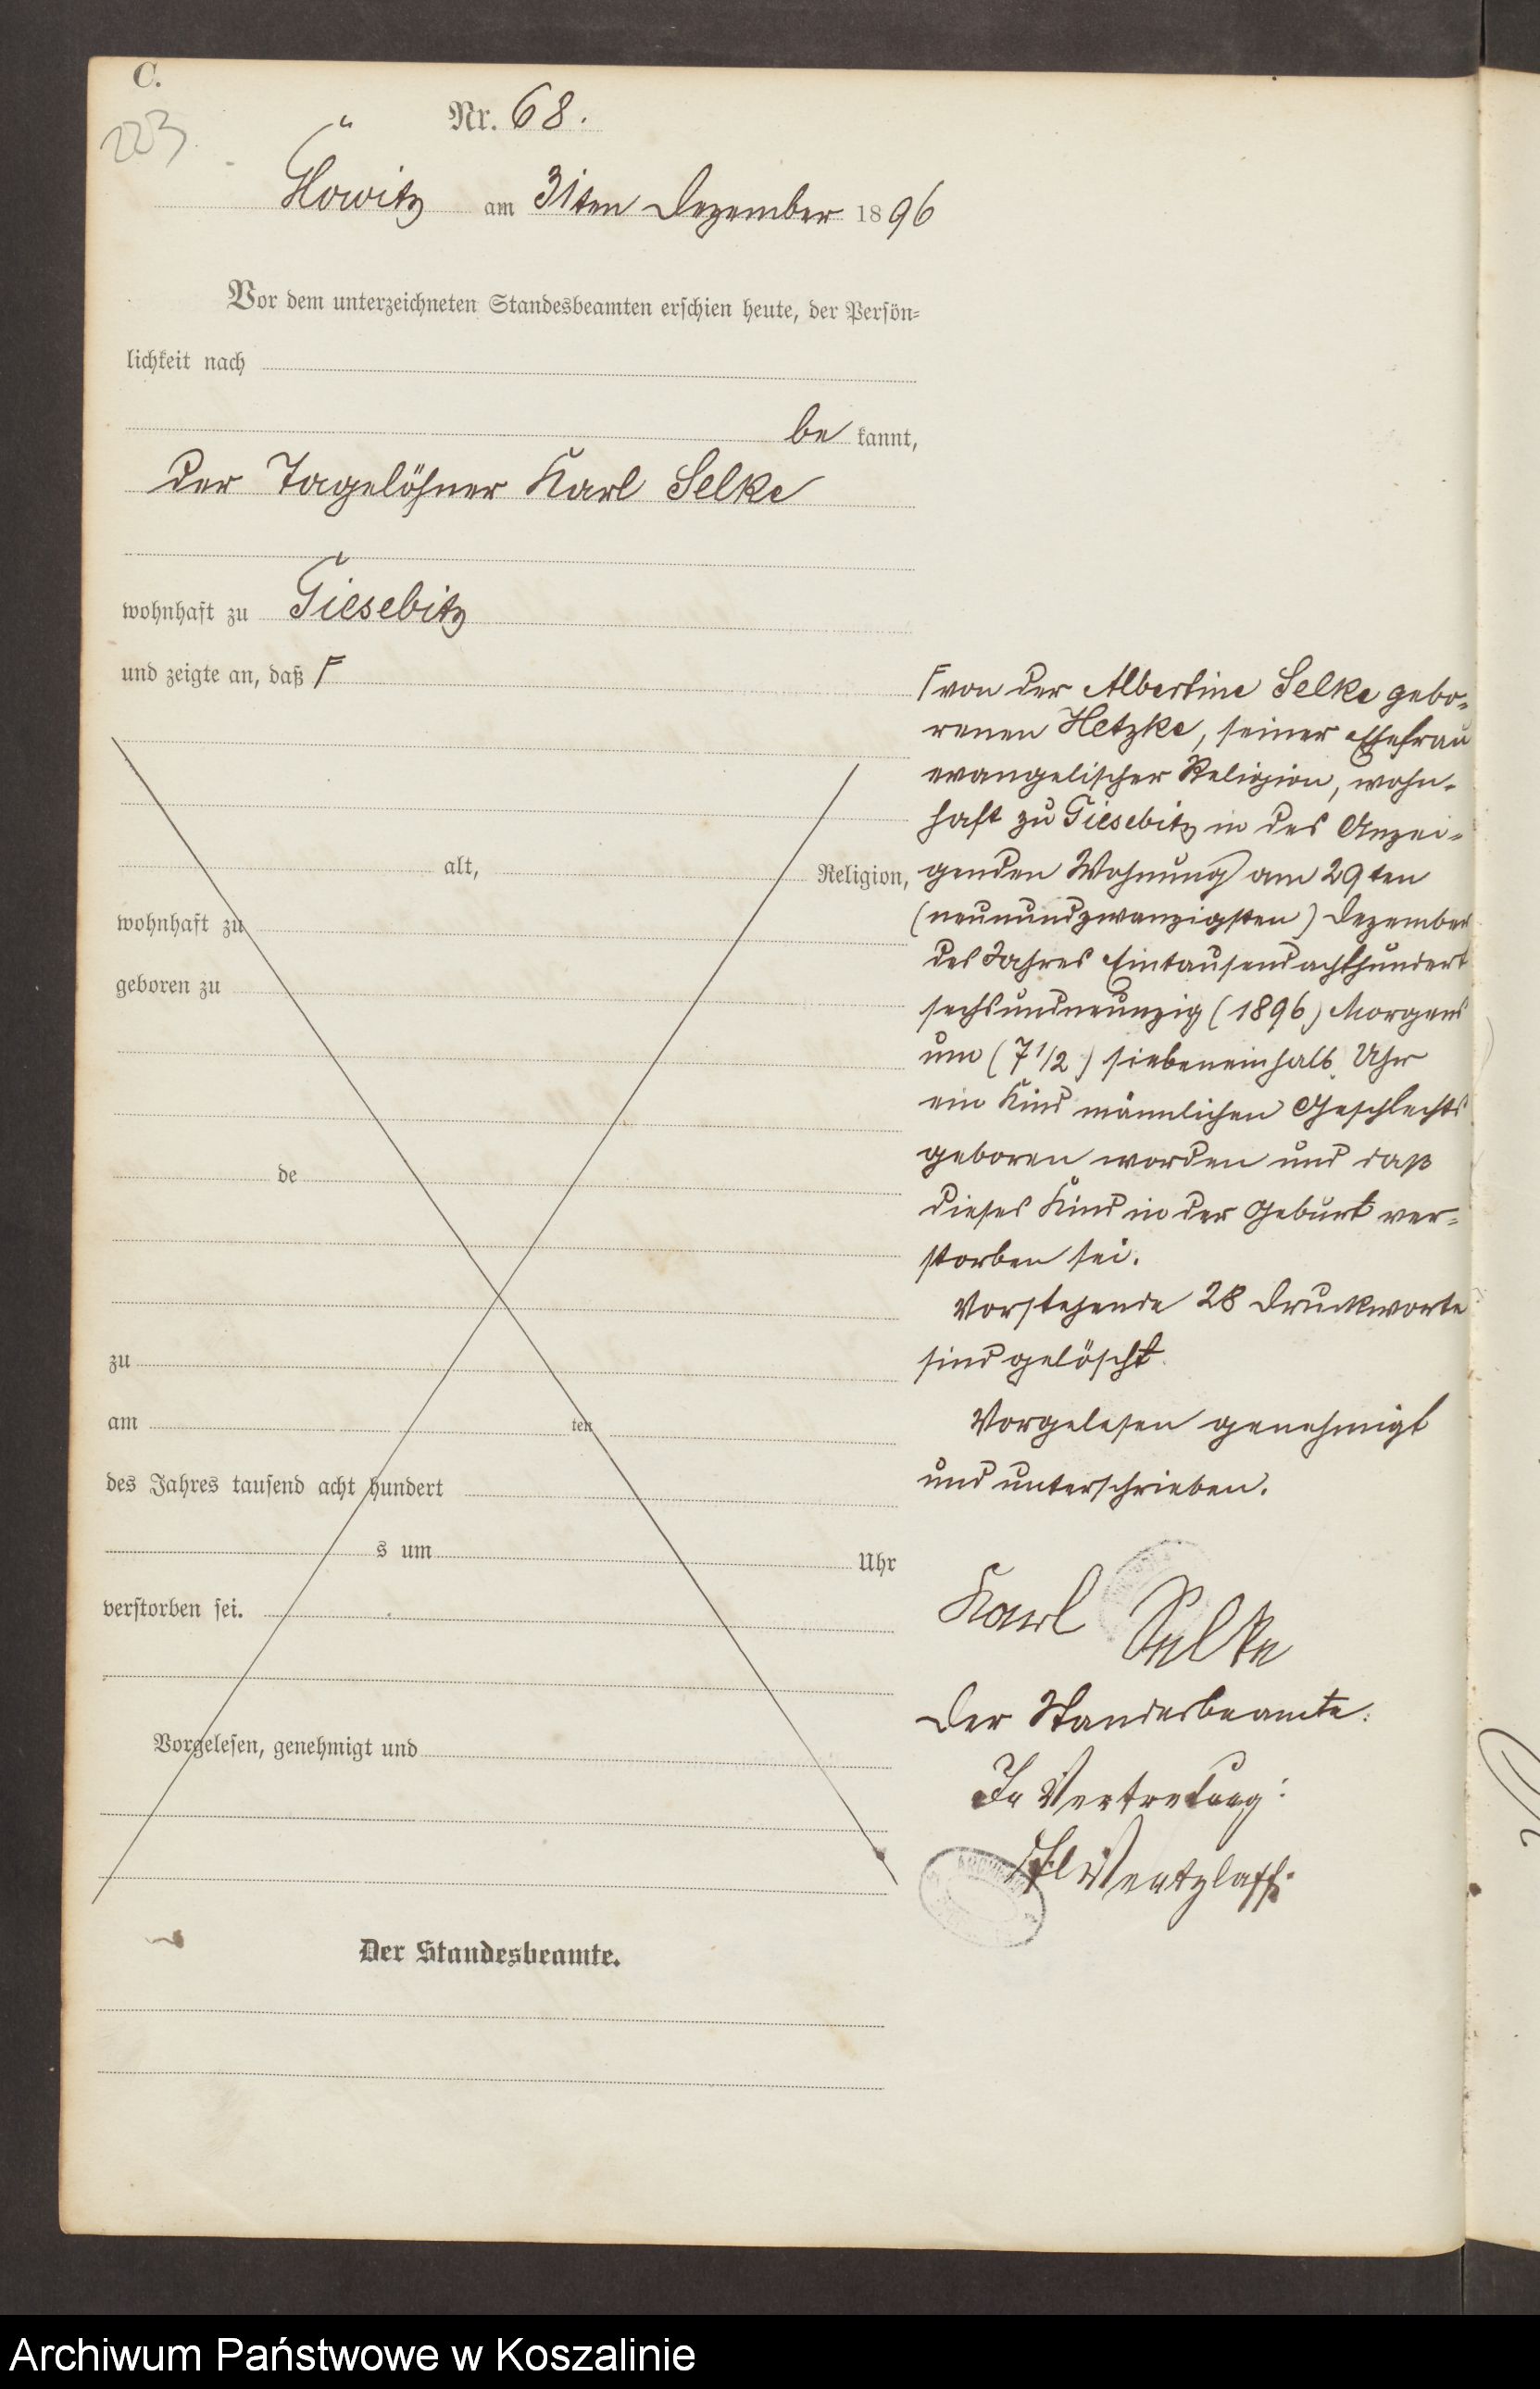 C.
223.
Nr. 68.
Glowitz am 31ten Dezember 1896
Vor dem unterzeichneten Standesbeamten erschien heute, der Persön-
lichkeit nach
be kannt,
der Tagelöhner Karl Selke
wohnhaft zu Giesebitz
und zeigte an, daß Γ
alt, Religion,
wohnhaft zu
geboren zu
de
zu
am ten
des Jahres tausend acht hundert
s um Uhr
verstorben sei.
Vorgelesen, genehmigt und
Der Standesbeamte.
Γ von der Albertine Selke gebo-
renen Hetzke, seiner Ehefrau
evangelischer Religion, wohn-
haft zu Giesebitz in des Anzei-
genden Wohnung am 29ten
(neunundzwanzigsten) Dezember
des Jahres Eintausendachthundert
sechsundneunzig (1896) Morgens
um (7 1/2) siebeneinhalb Uhr
ein Kind männlichen Geschlechts
geboren worden und daß
dieses Kind in der Geburt ver-
storben sei.
Vorstehende 28 Druckworte
sind gelöscht.
Vorgelesen genehmigt
und unterschrieben.
Karl Selke
Der Standesbeamte.
In Vertretung:
Wentzlaff.
Archiwum Państwowe w Koszalinie